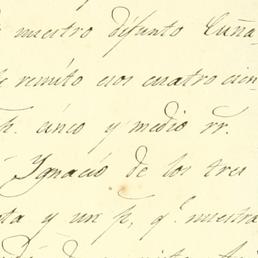 nuestro difunto Cuña-
remito esos cuatro cien-
p. cinco y medio rr.
Ygnacio de los tres
ta y un p, q.e nuestra